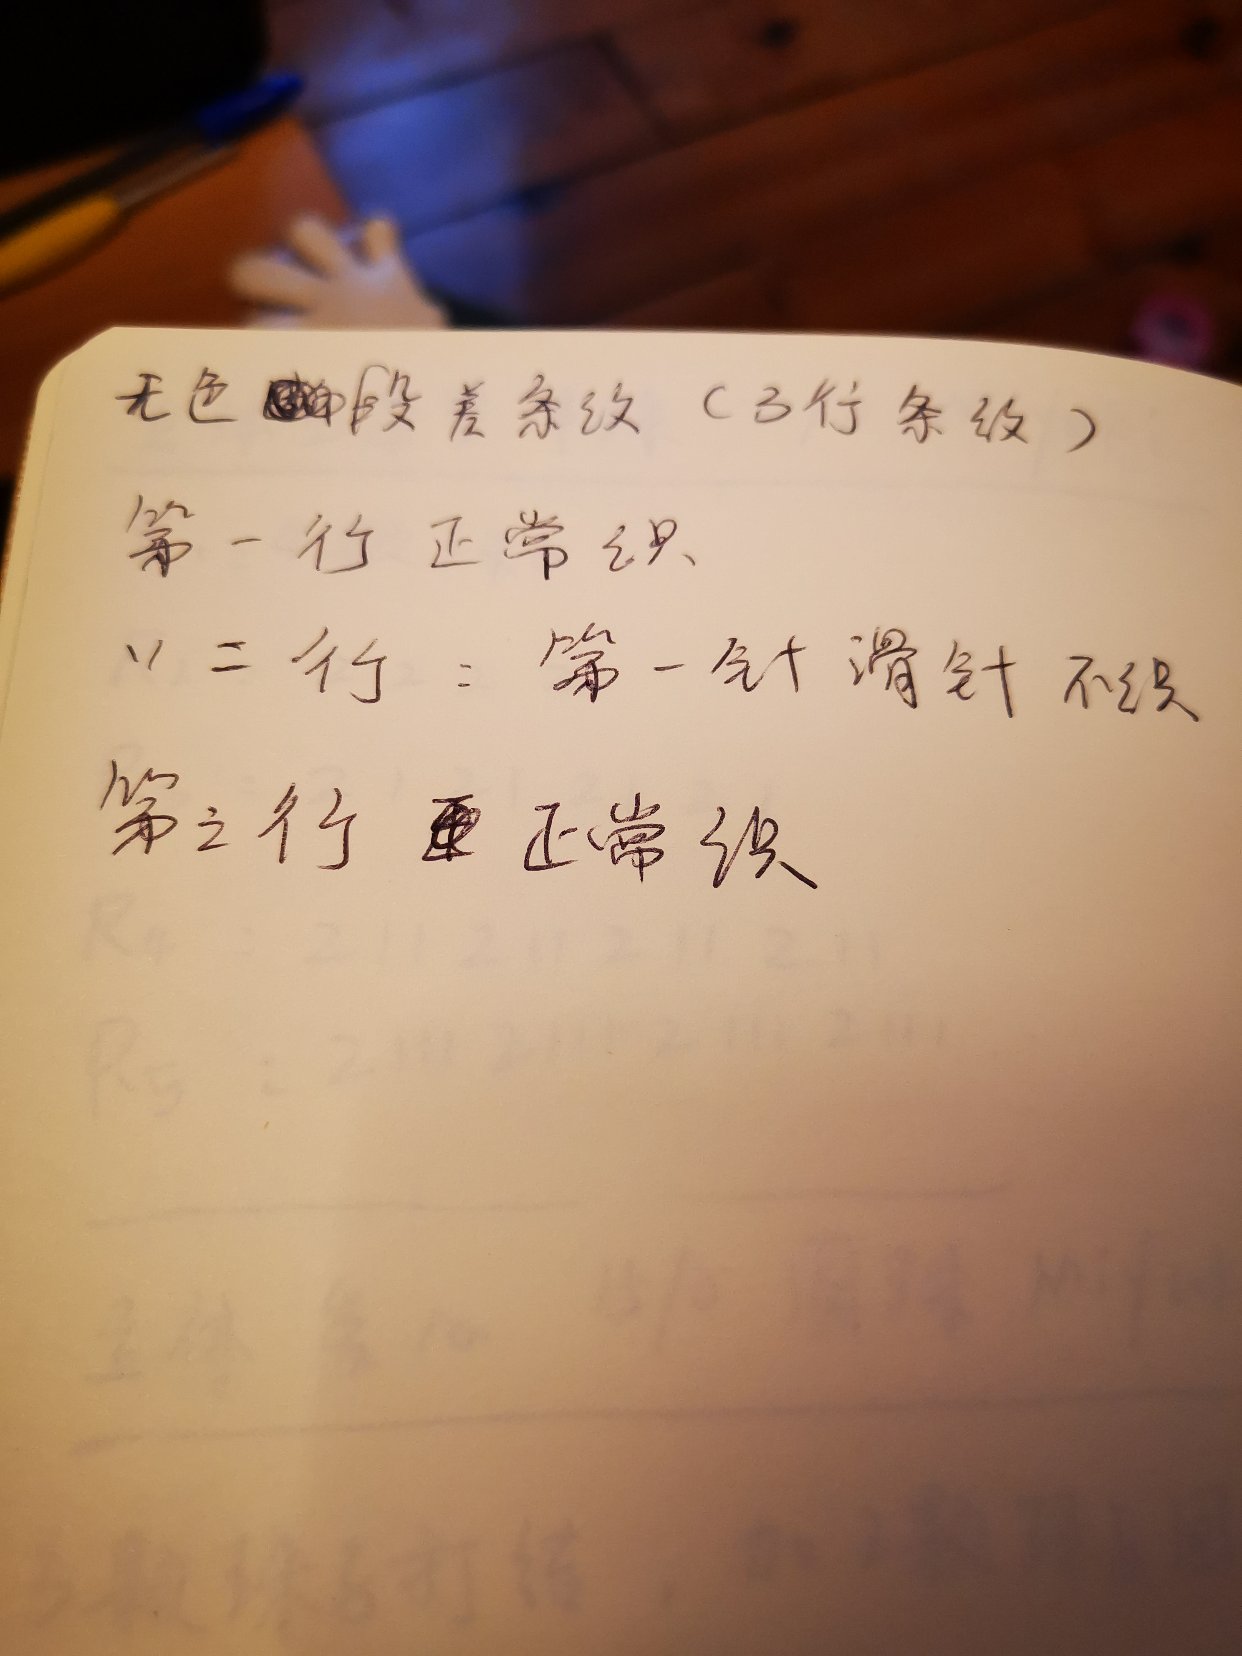 无色段差条纹（3行条纹）
第一行正常织
〃二行：第一针滑针不织
第三行 正常织